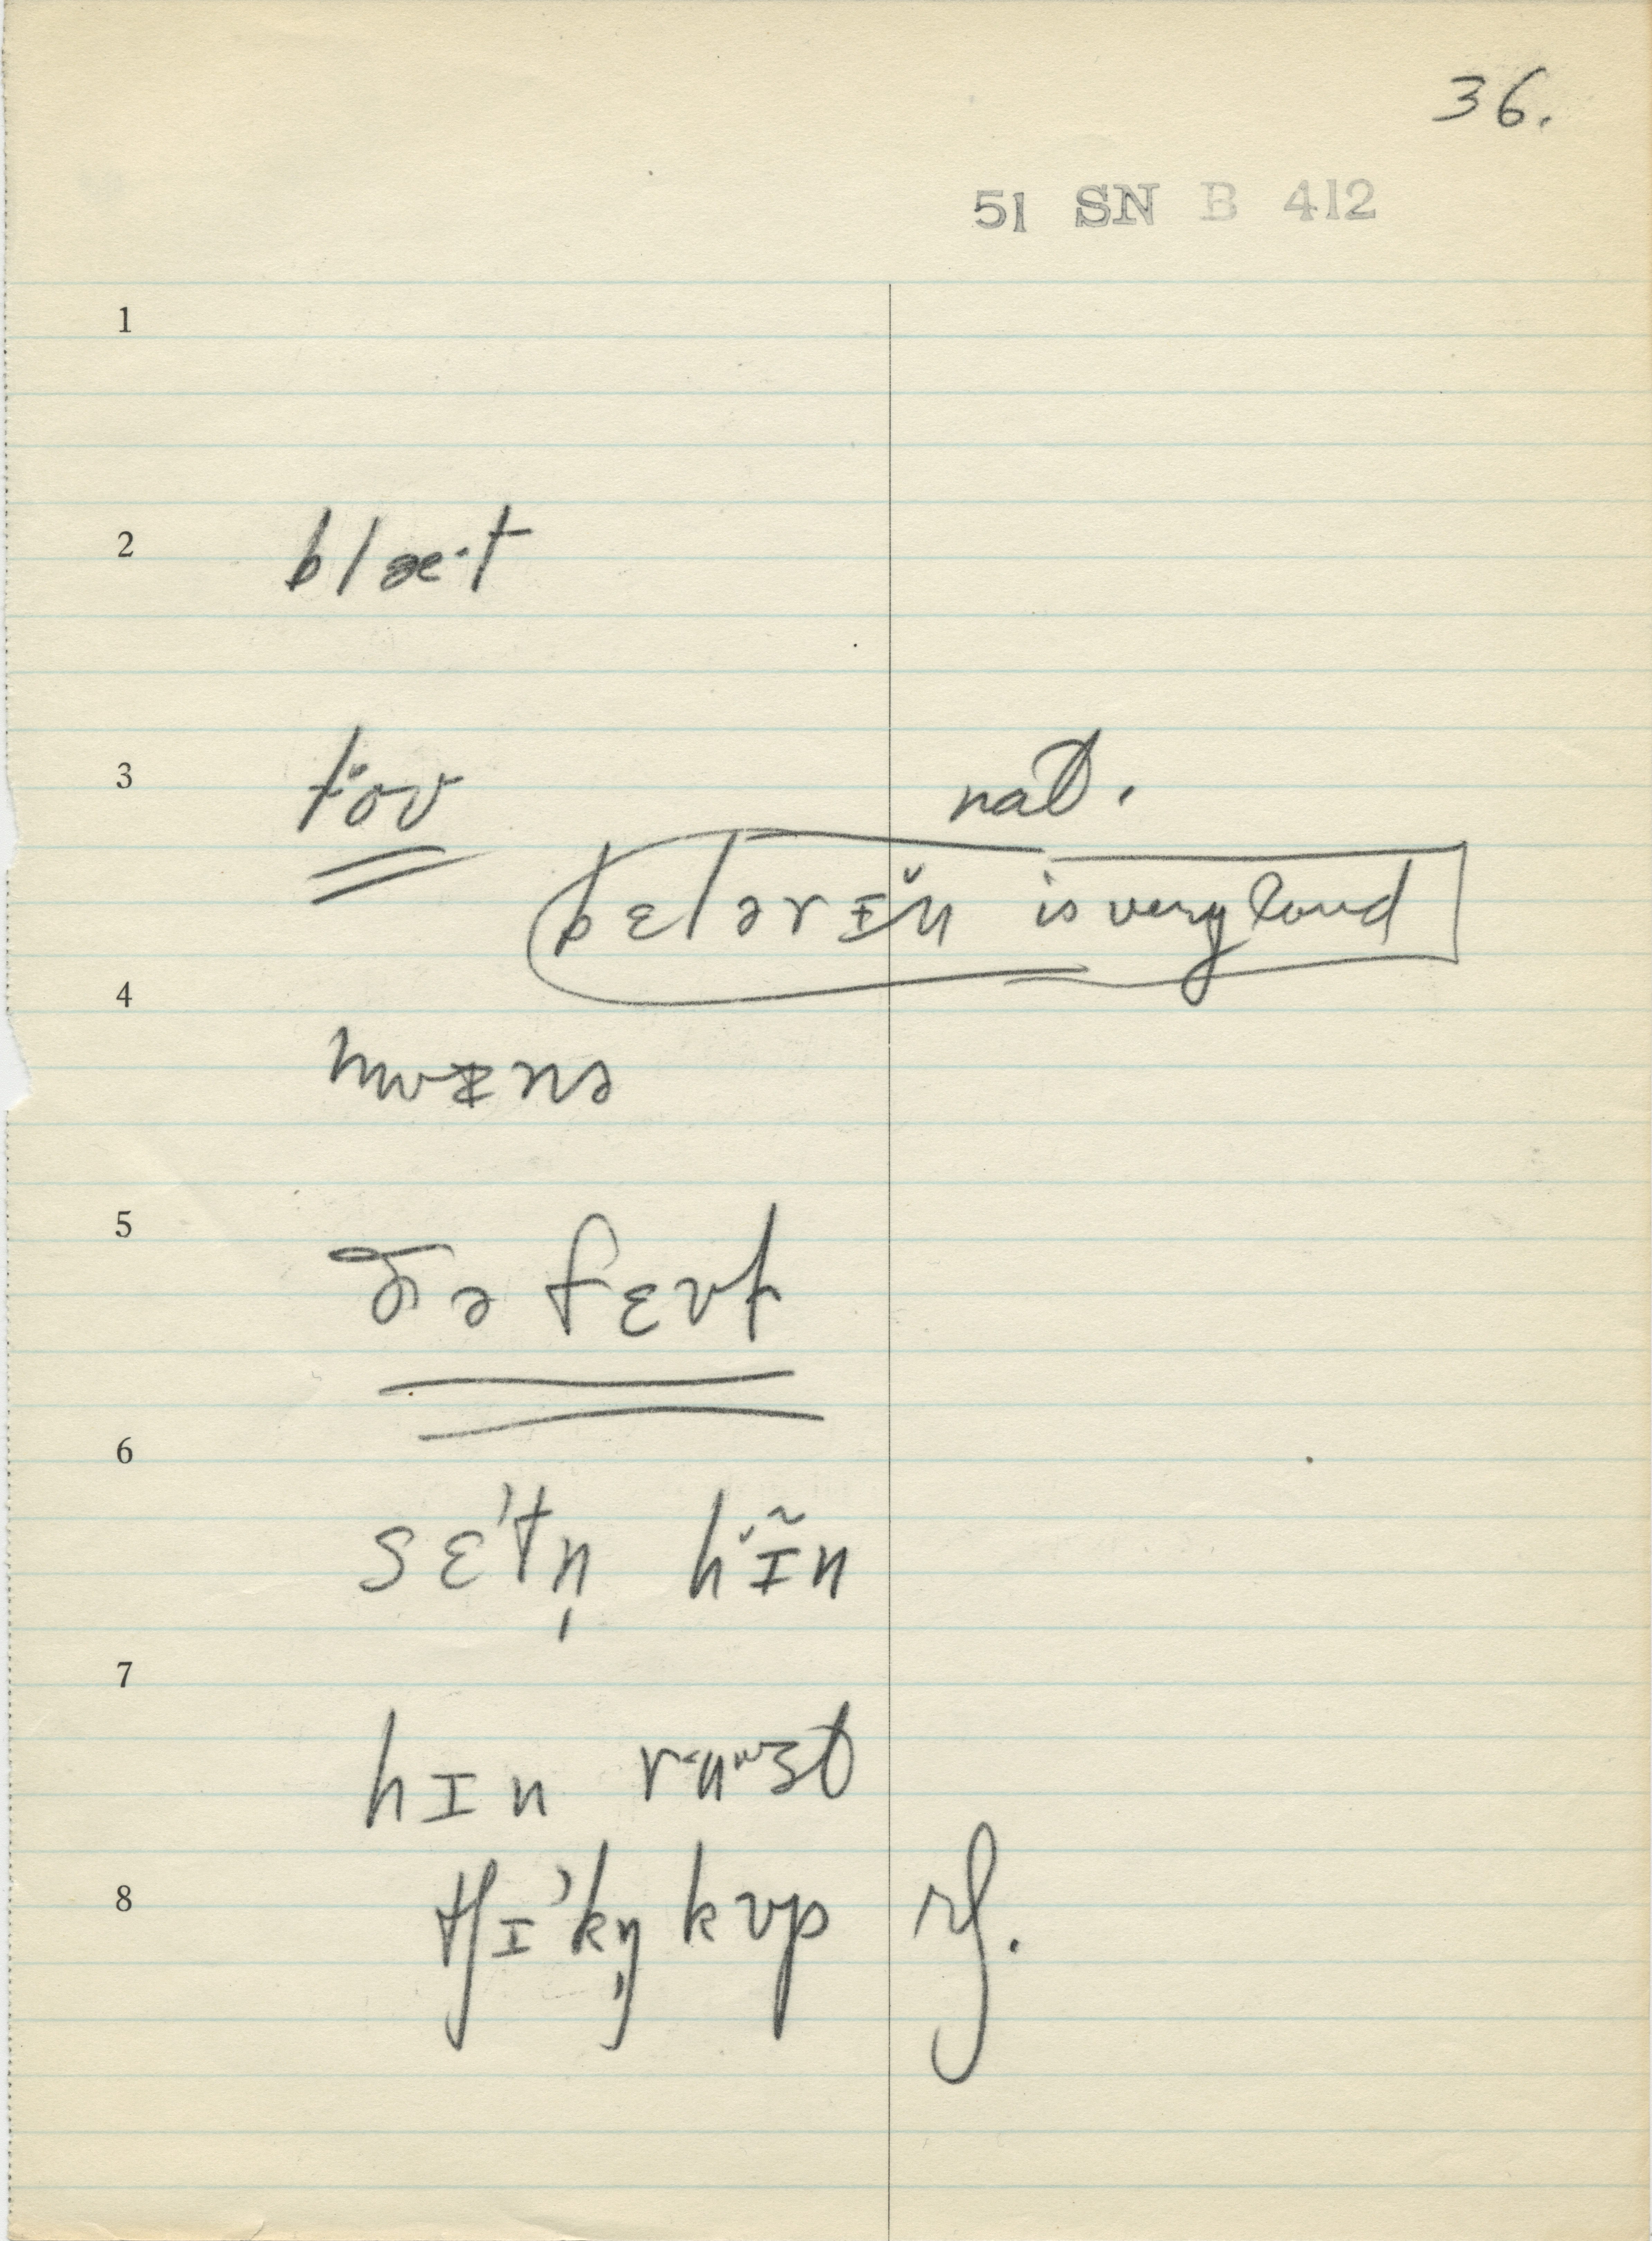 36.
51 SN B 412
1
2 blæ·t
3 tov nat.
bɛlərɪn is very loud
4 hwɪnə
5 ðə fɛvt
6 sɛ'tn̩ hɪ̃n
7 hɪn
8 tʃɪ'kŋ̩ kvp rf.